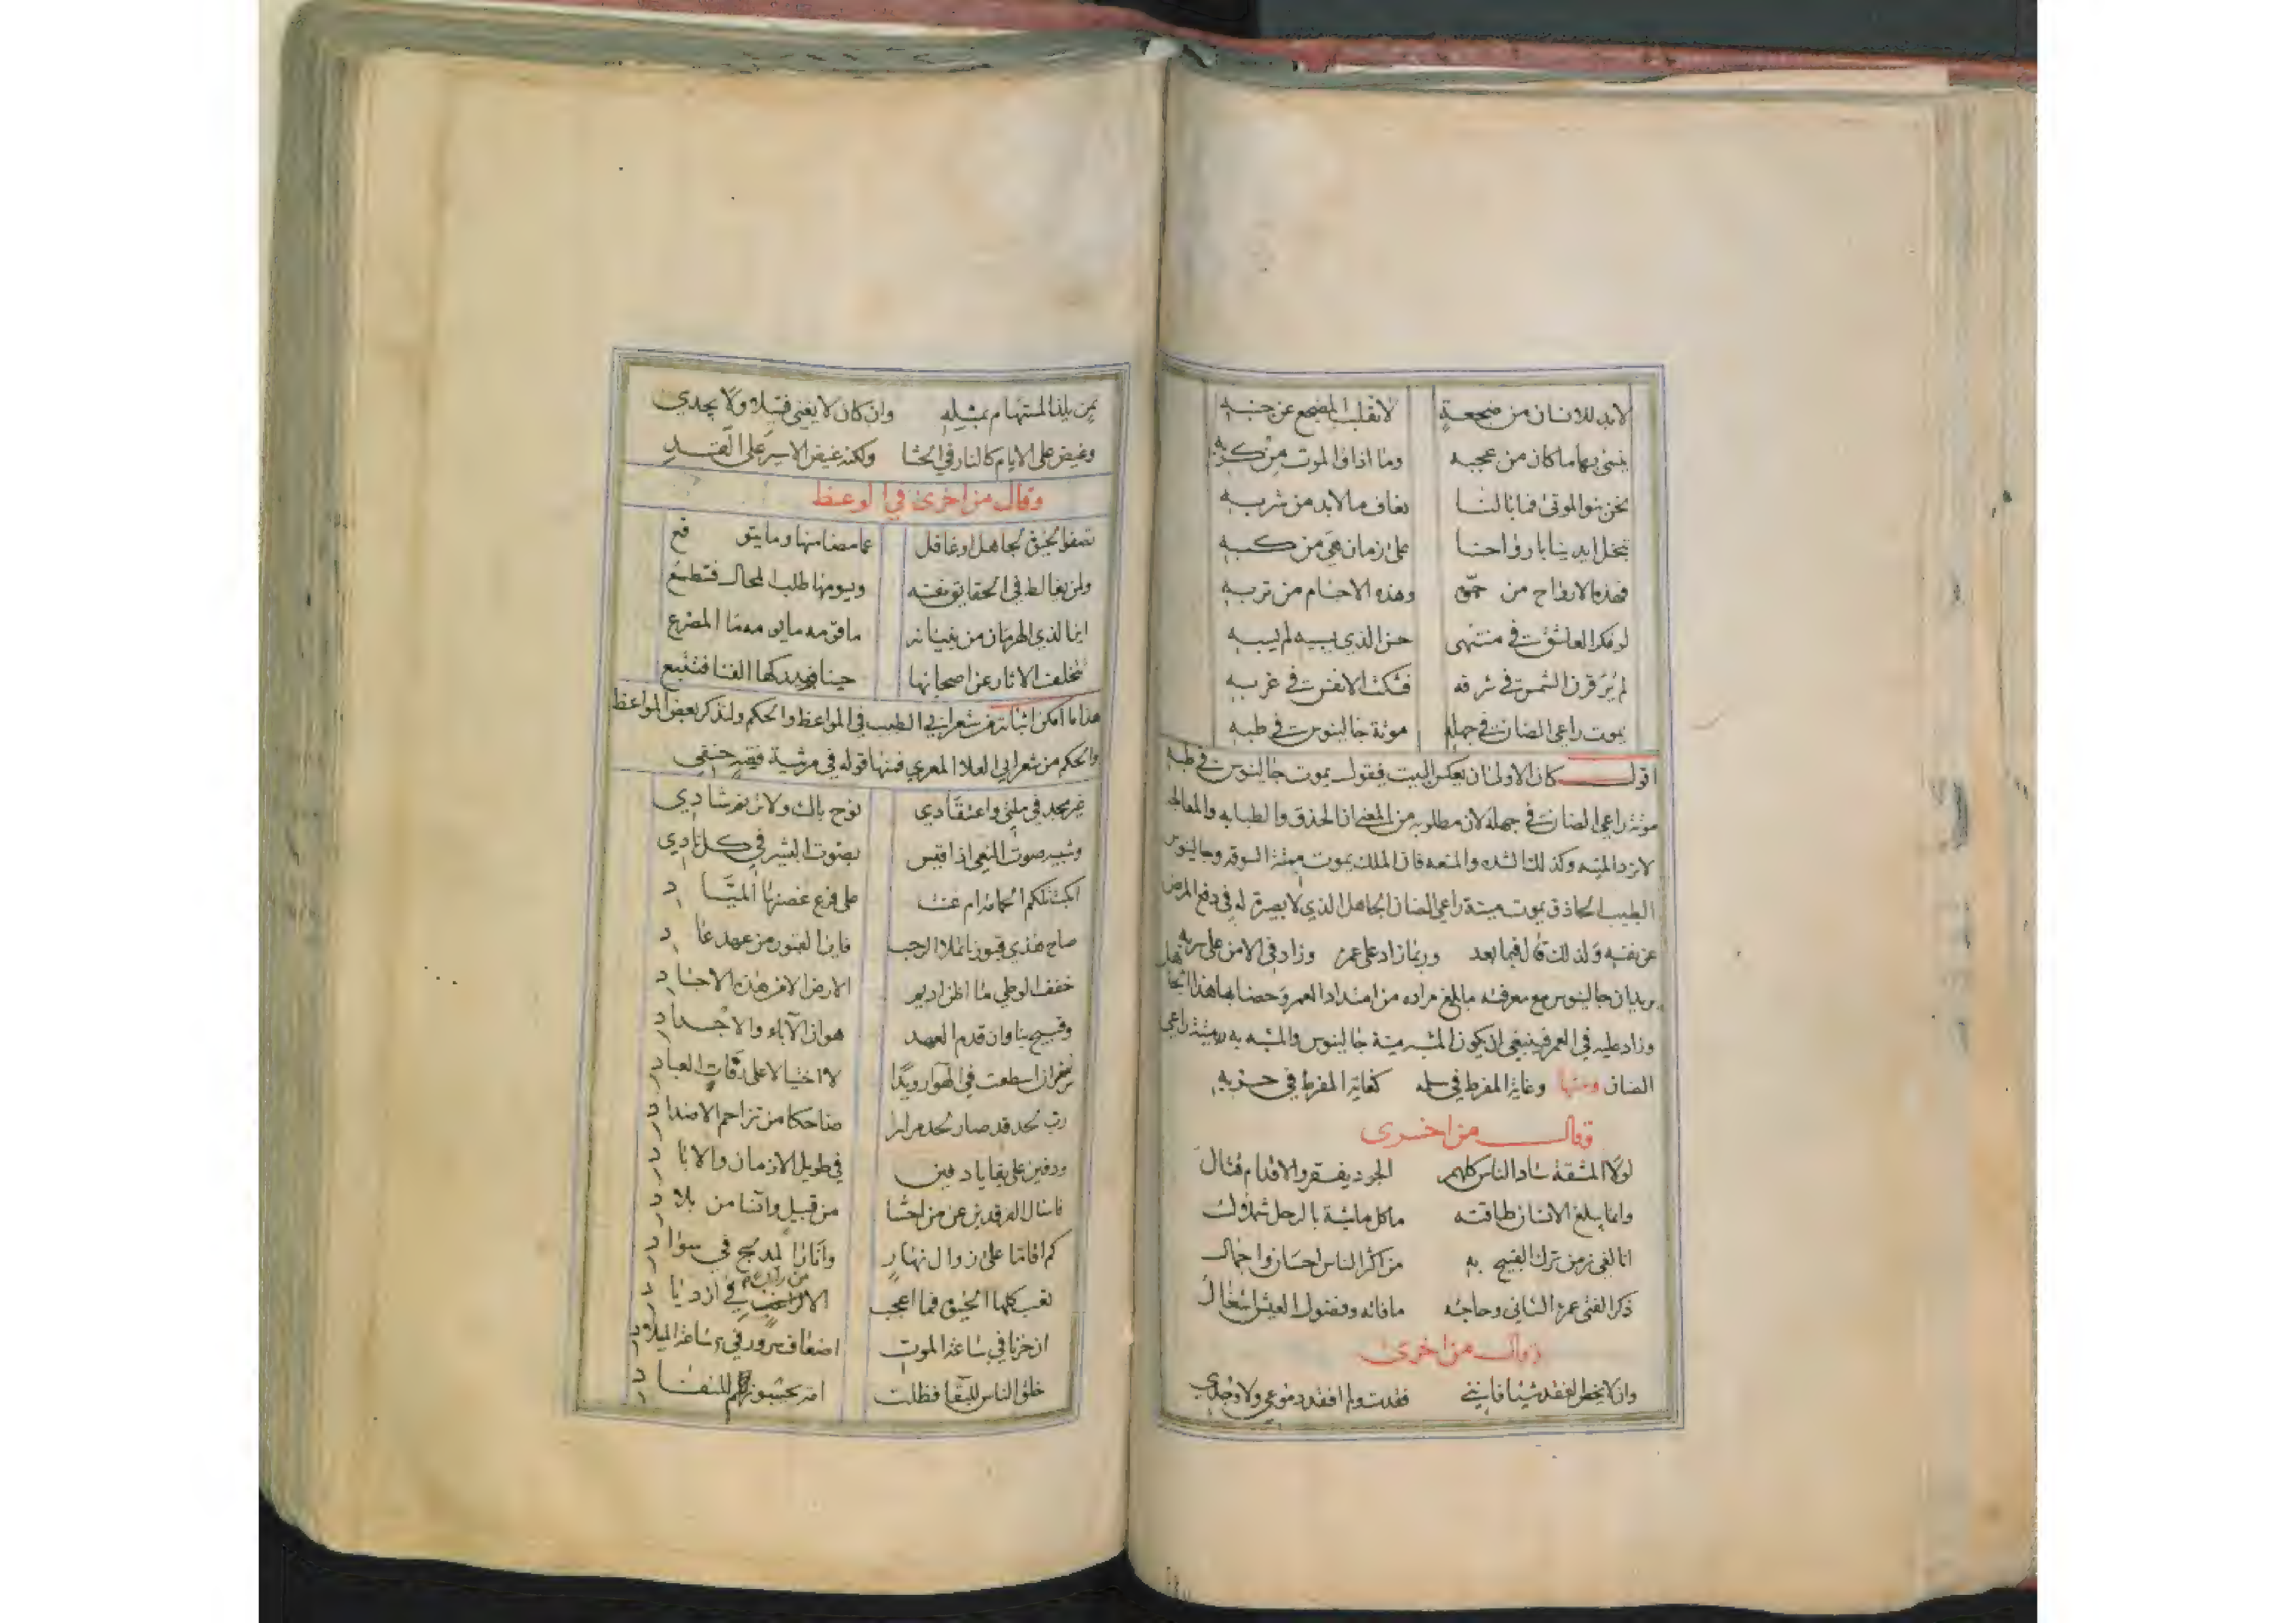 لابد للانسان من ضجعةٍ لا تقلب المضجع عن جنبه
ينسى بها ما كان من عجبه وما اذاق الموت من كربه
نحن بنو الموتى فما بالنا نعاف ما لابد من شربه
تبخل ايدينا بارواحنا على زمان هي من كسبه
فهذه الارواح من جوّه وهذه الاجسام من تربه
لو فكر العاشق في منتهى حسن الذي يسبيه لم يسبه
لم يُرَ قرن الشمس في شرقه فشكت الانفس في غربه
يموت راعي الضان في جهله موتة جالينوس في طبه
اقول كان الاولى ان يعكس البيت فيقول يموت جالينوس في طبه
موتة راعي الضان في جهله لان مطلوبه من المعنى ان الحذق والطبابه والمعالجه
لا ترد المنيه وكذلك الشده والمنعه فان الملك يموت ميتة السوقه وجالينوس
الطبيب الحاذق يموت ميتة راعي الضان الجاهل الذي لا بصيرة له في دفع المرض
عن نفسه ولذلك قال فيما بعد وربما زاد على عمره وزاد في الامن على سربه فهل
يريد ان جالينوس مع معرفته ما بلغ مراده من امتداد العمر وحصنا بها هذا الجاهل
وزاد عليه في العمر فينبغي ان يكون المشبه ميتة جالينوس والمشبه به ميتة راعي
الضان ومنها وغاية المفرط في سلمه كغاية المفرط في حربه
وقال من اخرى
لولا المشقة ساد الناس كلهم الجود يفقر والاقدام قتال
وانما يبلغ الانسان طاقته ما كل ماشية بالرحل شملال
انا لفي زمن ترك القبيح به من اكثر الناس احسان واجمال
ذكر الفتى عمره الثاني وحاجته ما فاته وفضول العيش اشغال
وقال من اخرى
وان لا يخطر الفقد شيئا فانني فقدت ولم افقد دموعي ولا وجدي
تمن يلذ المستهام بمثله وان كان لا يغني فتيلا ولا يجدي
وغيض على الايام كالنار في الحشا ولكنه غيض الاسير على القد
وقال من اخرى في الوعظ
تصفو الحيوة لجاهل او غافل عما مضا منها وما يتوقع
ولمن يغالط في الحقايق نفسه ويسومها طلب المحال فتطمع
اين الذي الهرمان من بنيانه ما قومه ما يومه ما المصرع
تتخلف الاثار عن اصحابها حينا فيدركها الفنا فتتبع
هذا ما امكن اثباته من شعر ابي الطيب في المواعظ والحكم ولنذكر بعض المواعظ
والحكم من شعر ابي العلا المعري فمنها قوله في مرثية فقيه حنفي
غير مجد في ملتي واعتقادي نوح باك ولا ترنم شادي
وشبيه صوت النعي اذا قيس بصوت البشير في كل نادي
ابكت تلكم الحمامة ام غنت على فرع غصنها المياد
صاح هذي قبورنا تملا الرحب فاين القبور من عهد عاد
خفف الوطي ما اظن اديم الارض الا من هذه الاجساد
وقبيح بنا وان قدم العهد هوان الآباء والاجداد
سر ان اسطعت في الهوا رويدًا لا اختيالا على رفات العباد
رب لحد قد صار لحد مرارا ضاحكا من تزاحم الاضداد
ودفين على بقايا دفين في طويل الازمان والاباد
فاسئال الفرقدين عن من احسا من قبيل وآنسا من بلاد
كم اقاما على زوال نهارٍ وانارا لمدلج في سواد
تعب كلها الحيوة فما اعجب الا من راغب في ازدياد
ان حزنا في ساعة الموت اضعاف سرور في ساعة الميلاد
خلق الناس للبقا فظلت امة يحسبونهم للنفاد